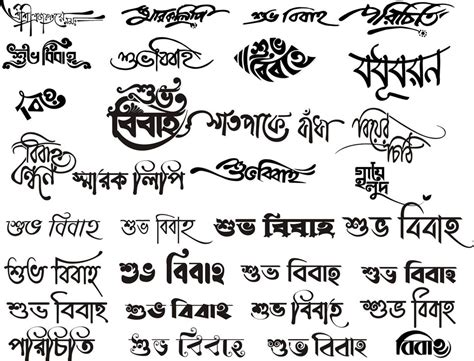 স্মারকলিপি
শুভ বিবাহ
পরিচিতি
শুভ বিবাহ
শুভবিবাহ
শুভ
বিবাহ
বধূবরন
শুভ
বিবাহ
সাতপাকে বাঁধা
বিয়ের
চিঠি
বিবাহ
বন্ধন
স্মারক লিপি
শুভবিবাহ
গায়ে
হলুদ
শুভ বিবাহ
শুভ বিবাহ
শুভ বিবাহ
শুভ বিবাহ
শুভ বিবাহ
শুভ বিবাহ
শুভ বিবাহ
শুভ বিবাহ
শুভ বিবাহ
শুভ বিবাহ
শুভ বিবাহ
শুভ বিবাহ
পরিচিতি
শুভ বিবাহ
শুভ বিবাহ
শুভ বিবাহ